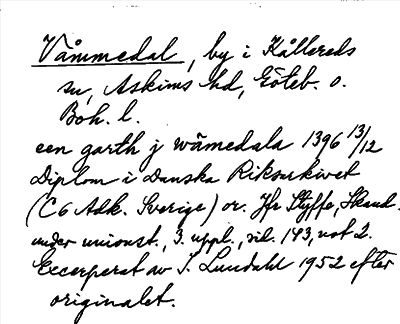 Våmmedal, by i Kållereds
sn, Askims hd, Göteb. o.
Boh. l.
een garth j wämedala 1396 13/12
Diplom i Danska Riksarkivet
(C6 Adk. Sverige) or. Jfr Styffe, Skand.
under unionst., 3. uppl., sid. 143, not 2.
Excerperat av I. Lundahl 1952 efter
originalet.